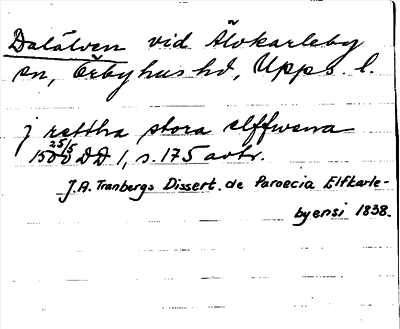 Dalälven vid Älvkarleby
sn, Örbyhus hd, Upps. l.
j rettha stora elffwena
25/5
1500 DD 1, s. 175 avtr.
J.A. Tranbergs Dissert. de Paroecia Elfkarle-
byensi 1838.